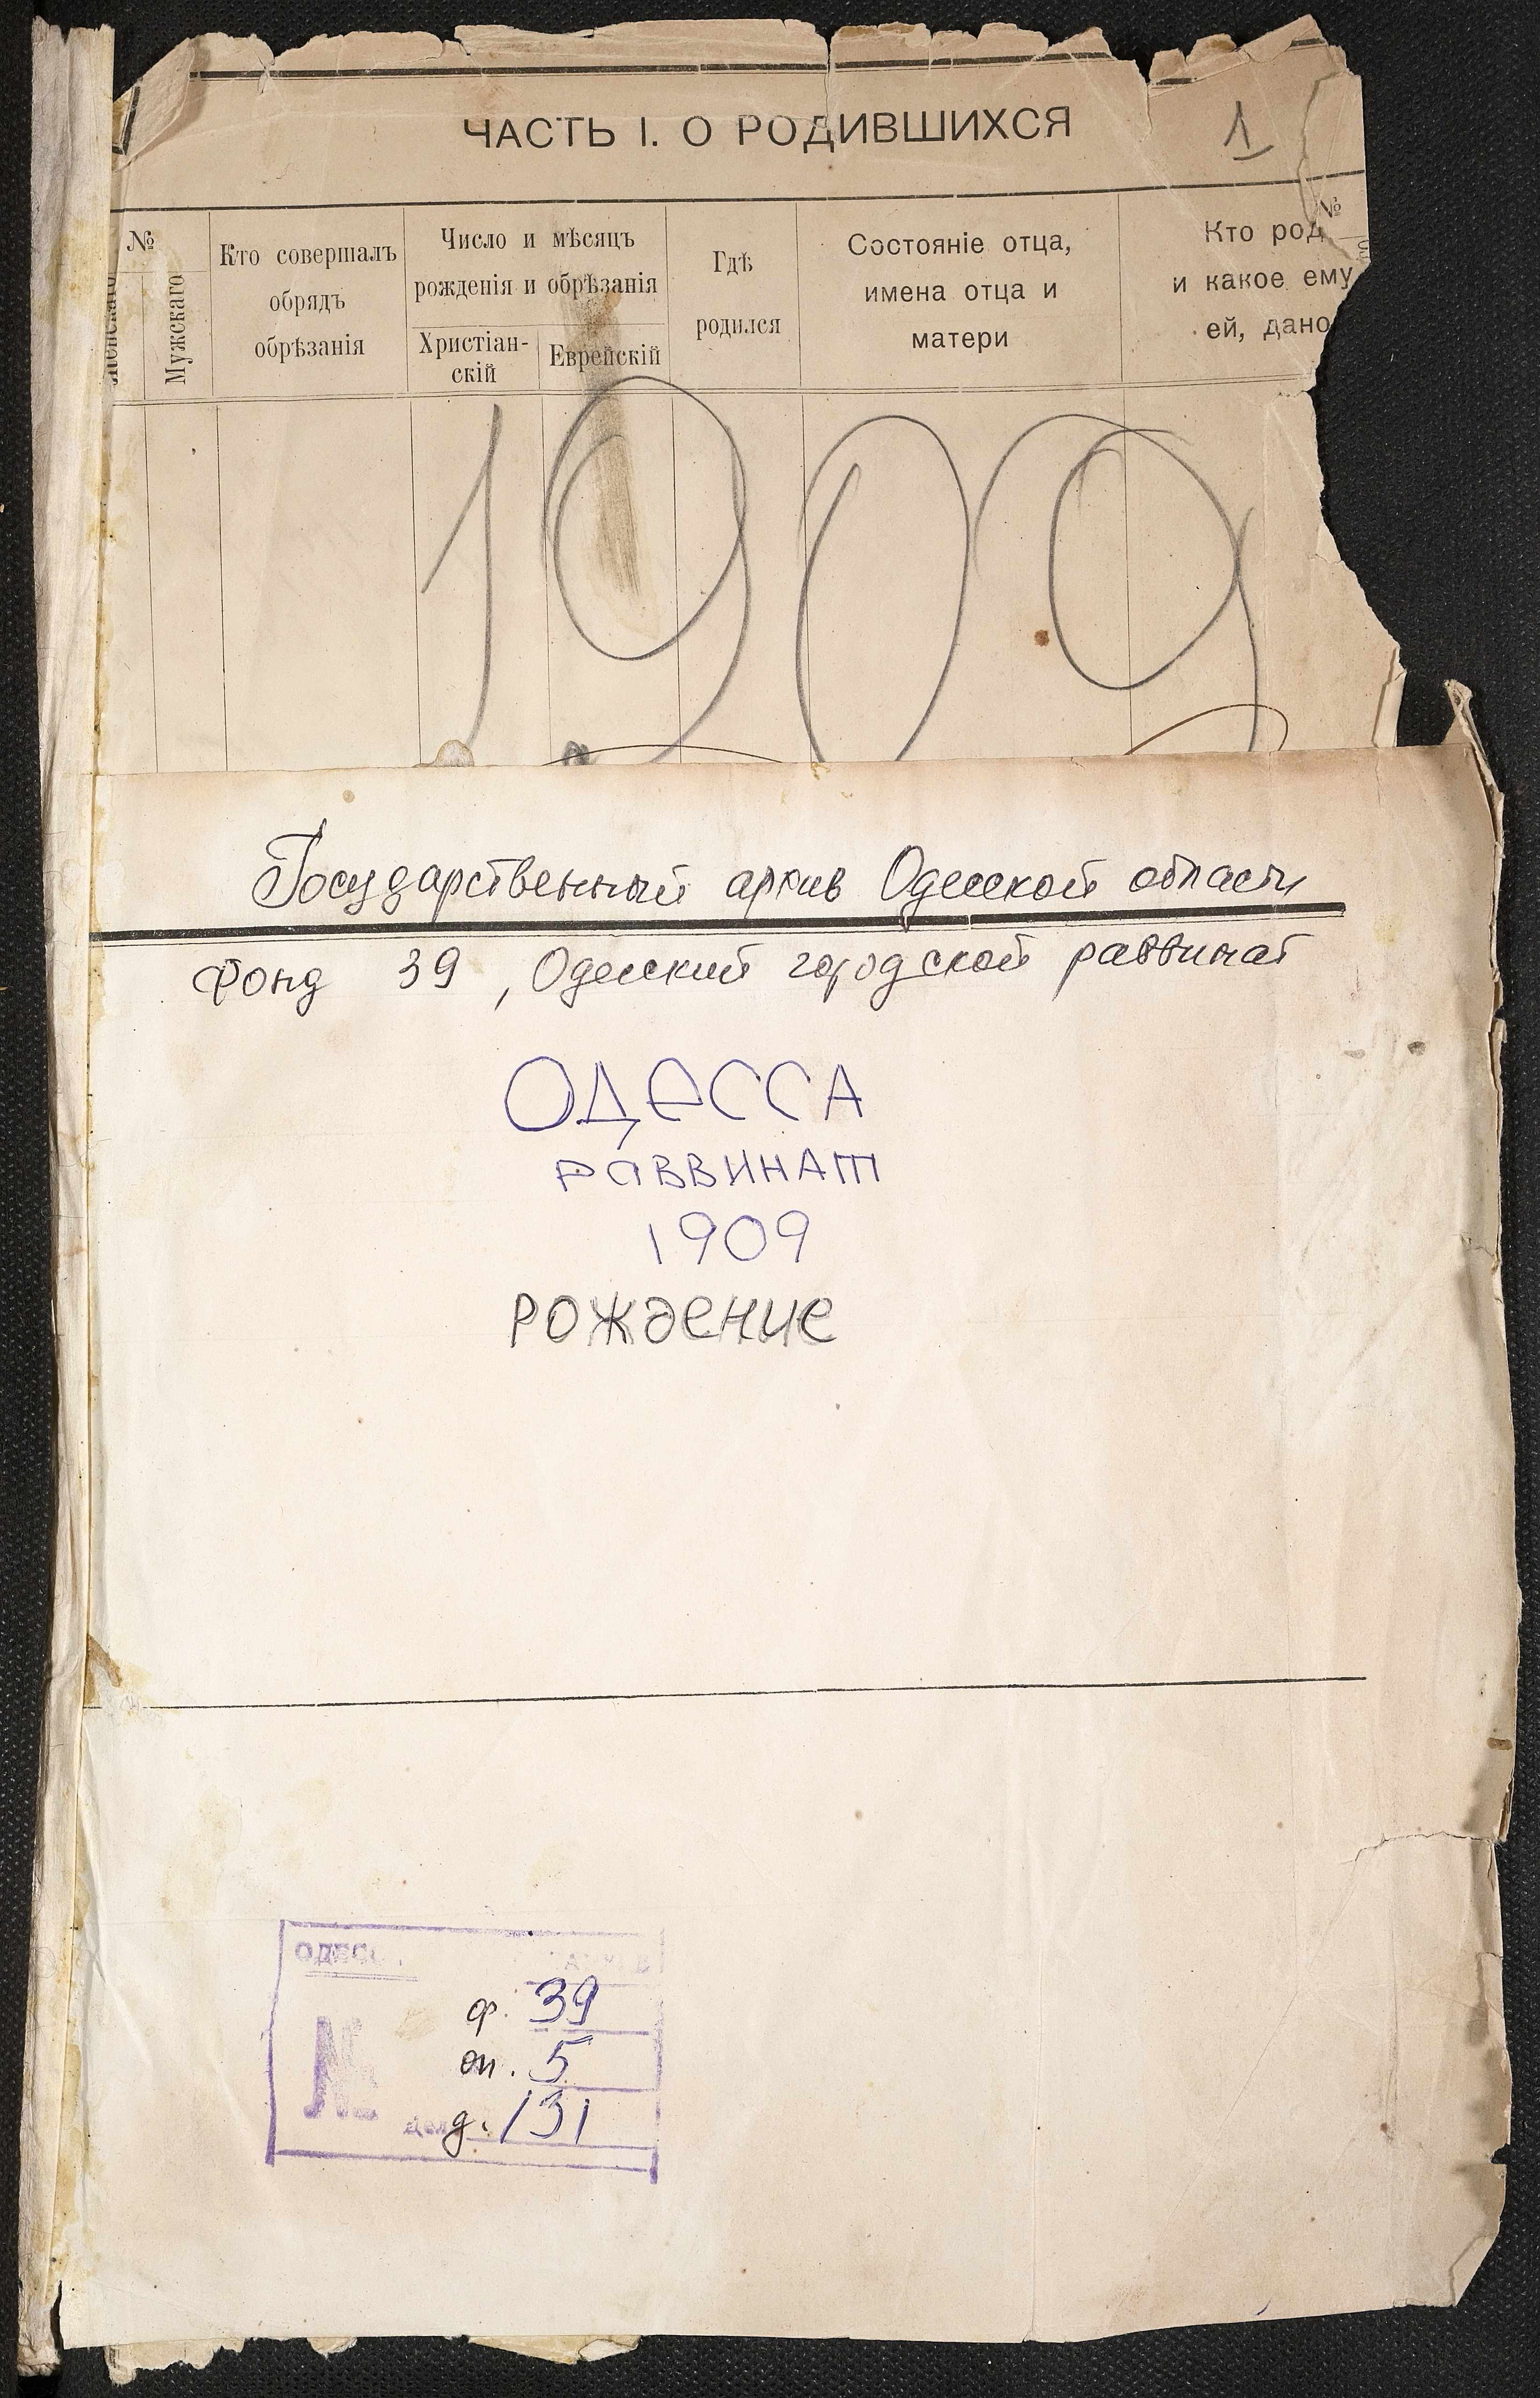 ЧАСТЬ I. О РОДИВШИХСЯ
1
№
Мужскаго
Кто совершалъ
обрядъ
обрѣзанія
Число и мѣсяцъ
рожденія и обрѣзанія
Христіан-
скій
Еврейскій
Гдѣ
родился
Состояніе отца,
имена отца и
матери
Кто род
и какое ему
ей, дано
№
1909
Государственный архив Одесской области
Фонд 39, Одесский городской раввинат
ОДЕССА
РАВВИНАТ
1909
РОЖДЕНИЕ
ф. 39
оп. 5
д. 131
№